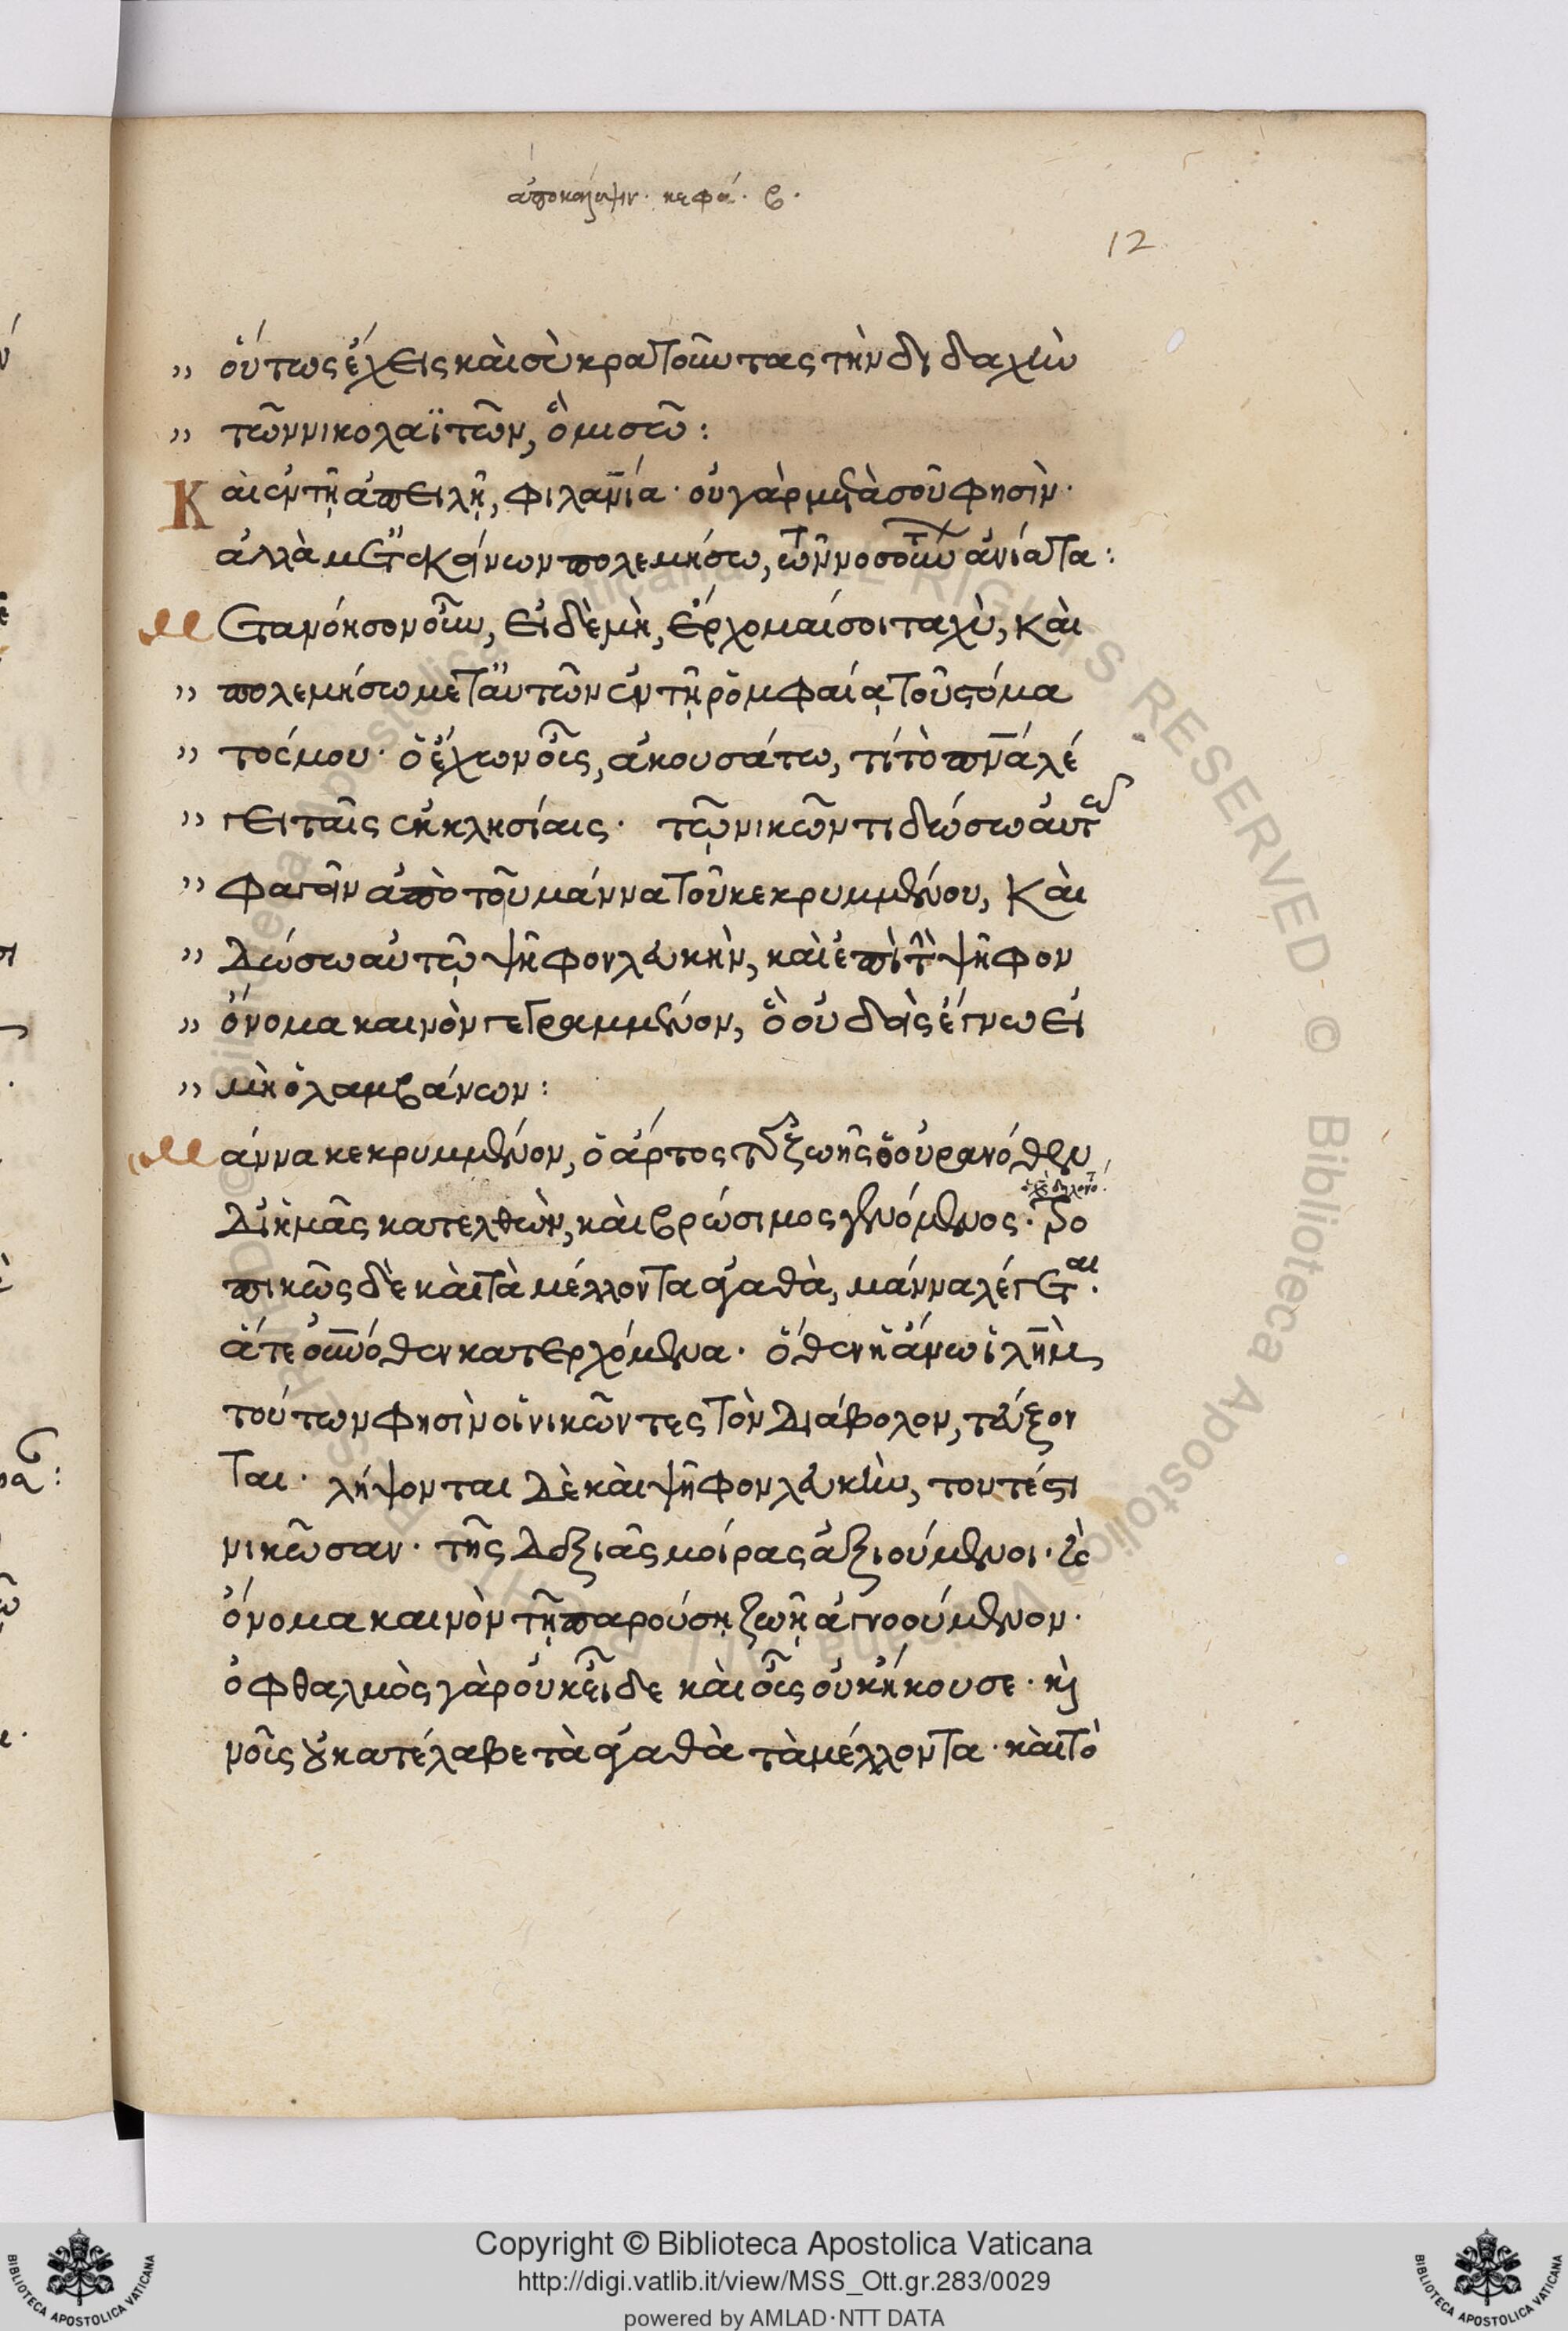 ἀποκάλυψιν. κεφά. β.
12
οὕτως ἔχεις καὶ σὺ κρατοῦντας τὴν διδαχὴν
τῶν νικολαϊτῶν, ὃ μισῶ:
Καὶ ἐν τῇ ἀπειλῇ, φιλανία· οὐ γὰρ μετὰ σοῦ φησὶν·
ἀλλὰ μετ' ἐκείνων πολεμήσω, τῶν νοσούντων ἀνίατα:
Μετανόησον οὖν, εἰ δὲ μὴ, ἔρχομαί σοι ταχὺ, καὶ
πολεμήσω μετ' αὐτῶν ἐν τῇ ῥομφαίᾳ τοῦ στόμα
τός μου· ὁ ἔχων οὖς, ἀκουσάτω, τί τὸ πνα λέ
γει ταῖς ἐκκλησίαις· τῷ νικῶντι δώσω αὐτῷ
φαγεῖν ἀπὸ τοῦ μάννα τοῦ κεκρυμμένου, καὶ
δώσω αὐτῷ ψῆφον λευκὴν, καὶ ἐπὶ τὴν ψῆφον
ὄνομα καινὸν γεγραμμένον, ὃ οὐδεὶς ἔγνω εἰ
μὴ ὁ λαμβάνων:
Μάννα κεκρυμμένον, ὁ ἄρτος τῆς ζωῆς ὁ οὐρανόθεν
δι' ἡμᾶς κατελθὼν, καὶ βρώσιμος γενόμενος. Τρο
πικῶς δὲ καὶ τὰ μέλλοντα ἀγαθὰ, μάννα λέγεται.
ἅτε οὐνόθεν κατερχόμενα. ὅθεν ἡ ἄνω ἱλήμ,
τούτων φησὶν οἱ νικῶντες τὸν διάβολον, τεύξον
ται. λήψονται δὲ καὶ ψῆφον λευκὴν, τουτέστι
νικῶσαν. τῆς δεξιᾶς μοίρας ἀξιούμενοι. καὶ
ὄνομα καινὸν τῇ παρούσῃ ζωῇ ἀγνοούμενον.
ὀφθαλμὸς γὰρ οὐκ εἶδε καὶ οὖς οὐκ ἤκουσε. καὶ
νοῦς οὐ κατέλαβε τὰ ἀγαθὰ τὰ μέλλοντα. καὶ τὸ
Copyright © Biblioteca Apostolica Vaticana
http://digi.vatlib.it/view/MSS_Ott.gr.283/0029
powered by AMLAD·NTT DATA
BIBLIOTECA APOSTOLICA VATICANA
BIBLIOTECA APOSTOLICA VATICANA